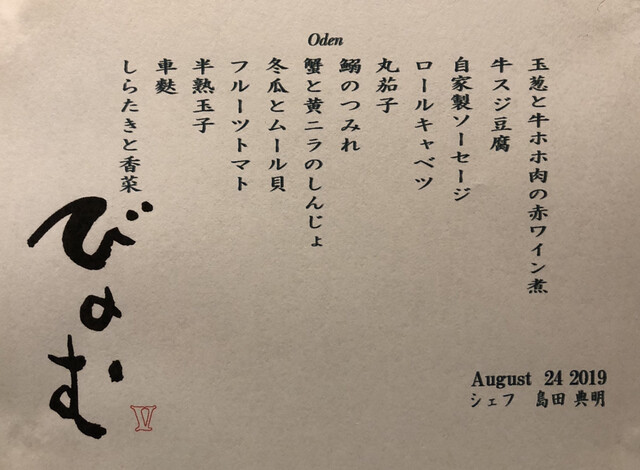 Oden
玉葱と牛ホホ肉の赤ワイン煮
牛スジ豆腐
自家製ソーセージ
ロールキャベツ
丸茄子
鰯のつみれ
蟹と黄ニラのしんじょ
冬瓜とムール貝
フルーツトマト
半熟玉子
車麩
しらたきと香菜
びのむ
V
August 24 2019
シェフ 島田 典明